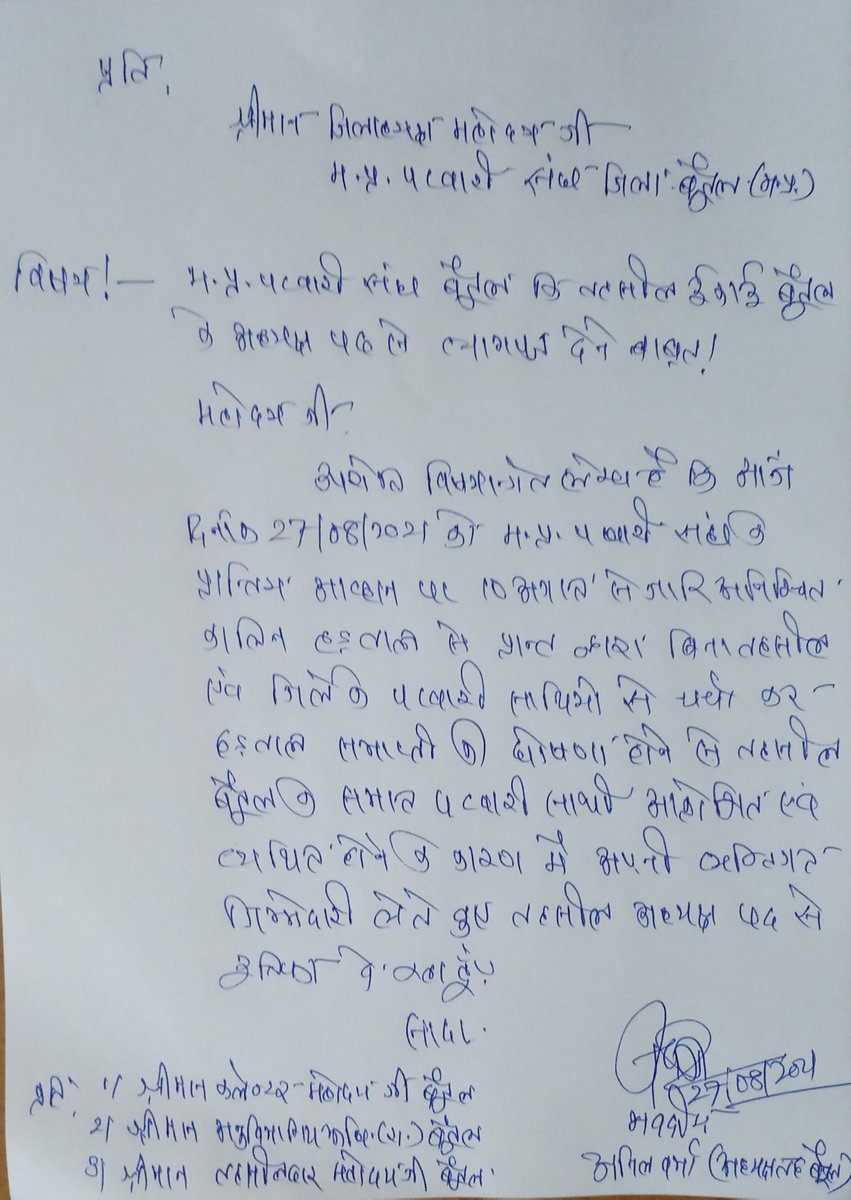 प्रति,
श्रीमान जिलाध्यक्ष महोदय जी
म.प्र. पटवारी संघ जिला बैतूल (म.प्र.)
विषय!— म.प्र. पटवारी संघ बैतूल कि तहसील ईकाई बैतूल
के अध्यक्ष पद से त्यागपत्र देने बाबत!
महोदय जी
उपरोक्त विषयान्तर्गत लेख है कि आज
दिनांक 27/08/2021 को म.प्र. पटवारी संघ के
प्रान्तिय आव्हान पर 10 अगस्त से जारि अनिश्चित
कालिन हड़ताल से प्रान्त द्वारा बिना तहसील
एंव जिले के पटवारी साथियो से चर्चा कर
हड़ताल समाप्ती की घोषणा होने से तहसील
बैतूल के समस्त पटवारी साथी आक्रोशित एवं
व्यथित होने के कारण मैं अपनी व्यक्तिगत
जिम्मेदारी लेते हुए तहसील अध्यक्ष पद से
इस्तिफा दे रहा हूँ।
सादर.
27/08/2021
प्रति: 1) श्रीमान कलेक्टर महोदय जी बैतूल
2) श्रीमान अनुविभागिय अधि. (रा.) बैतूल
3) श्रीमान तहसीलदार महोदय जी बैतूल
भवदीय
अनिल वर्मा (अध्यक्ष तह. बैतूल)